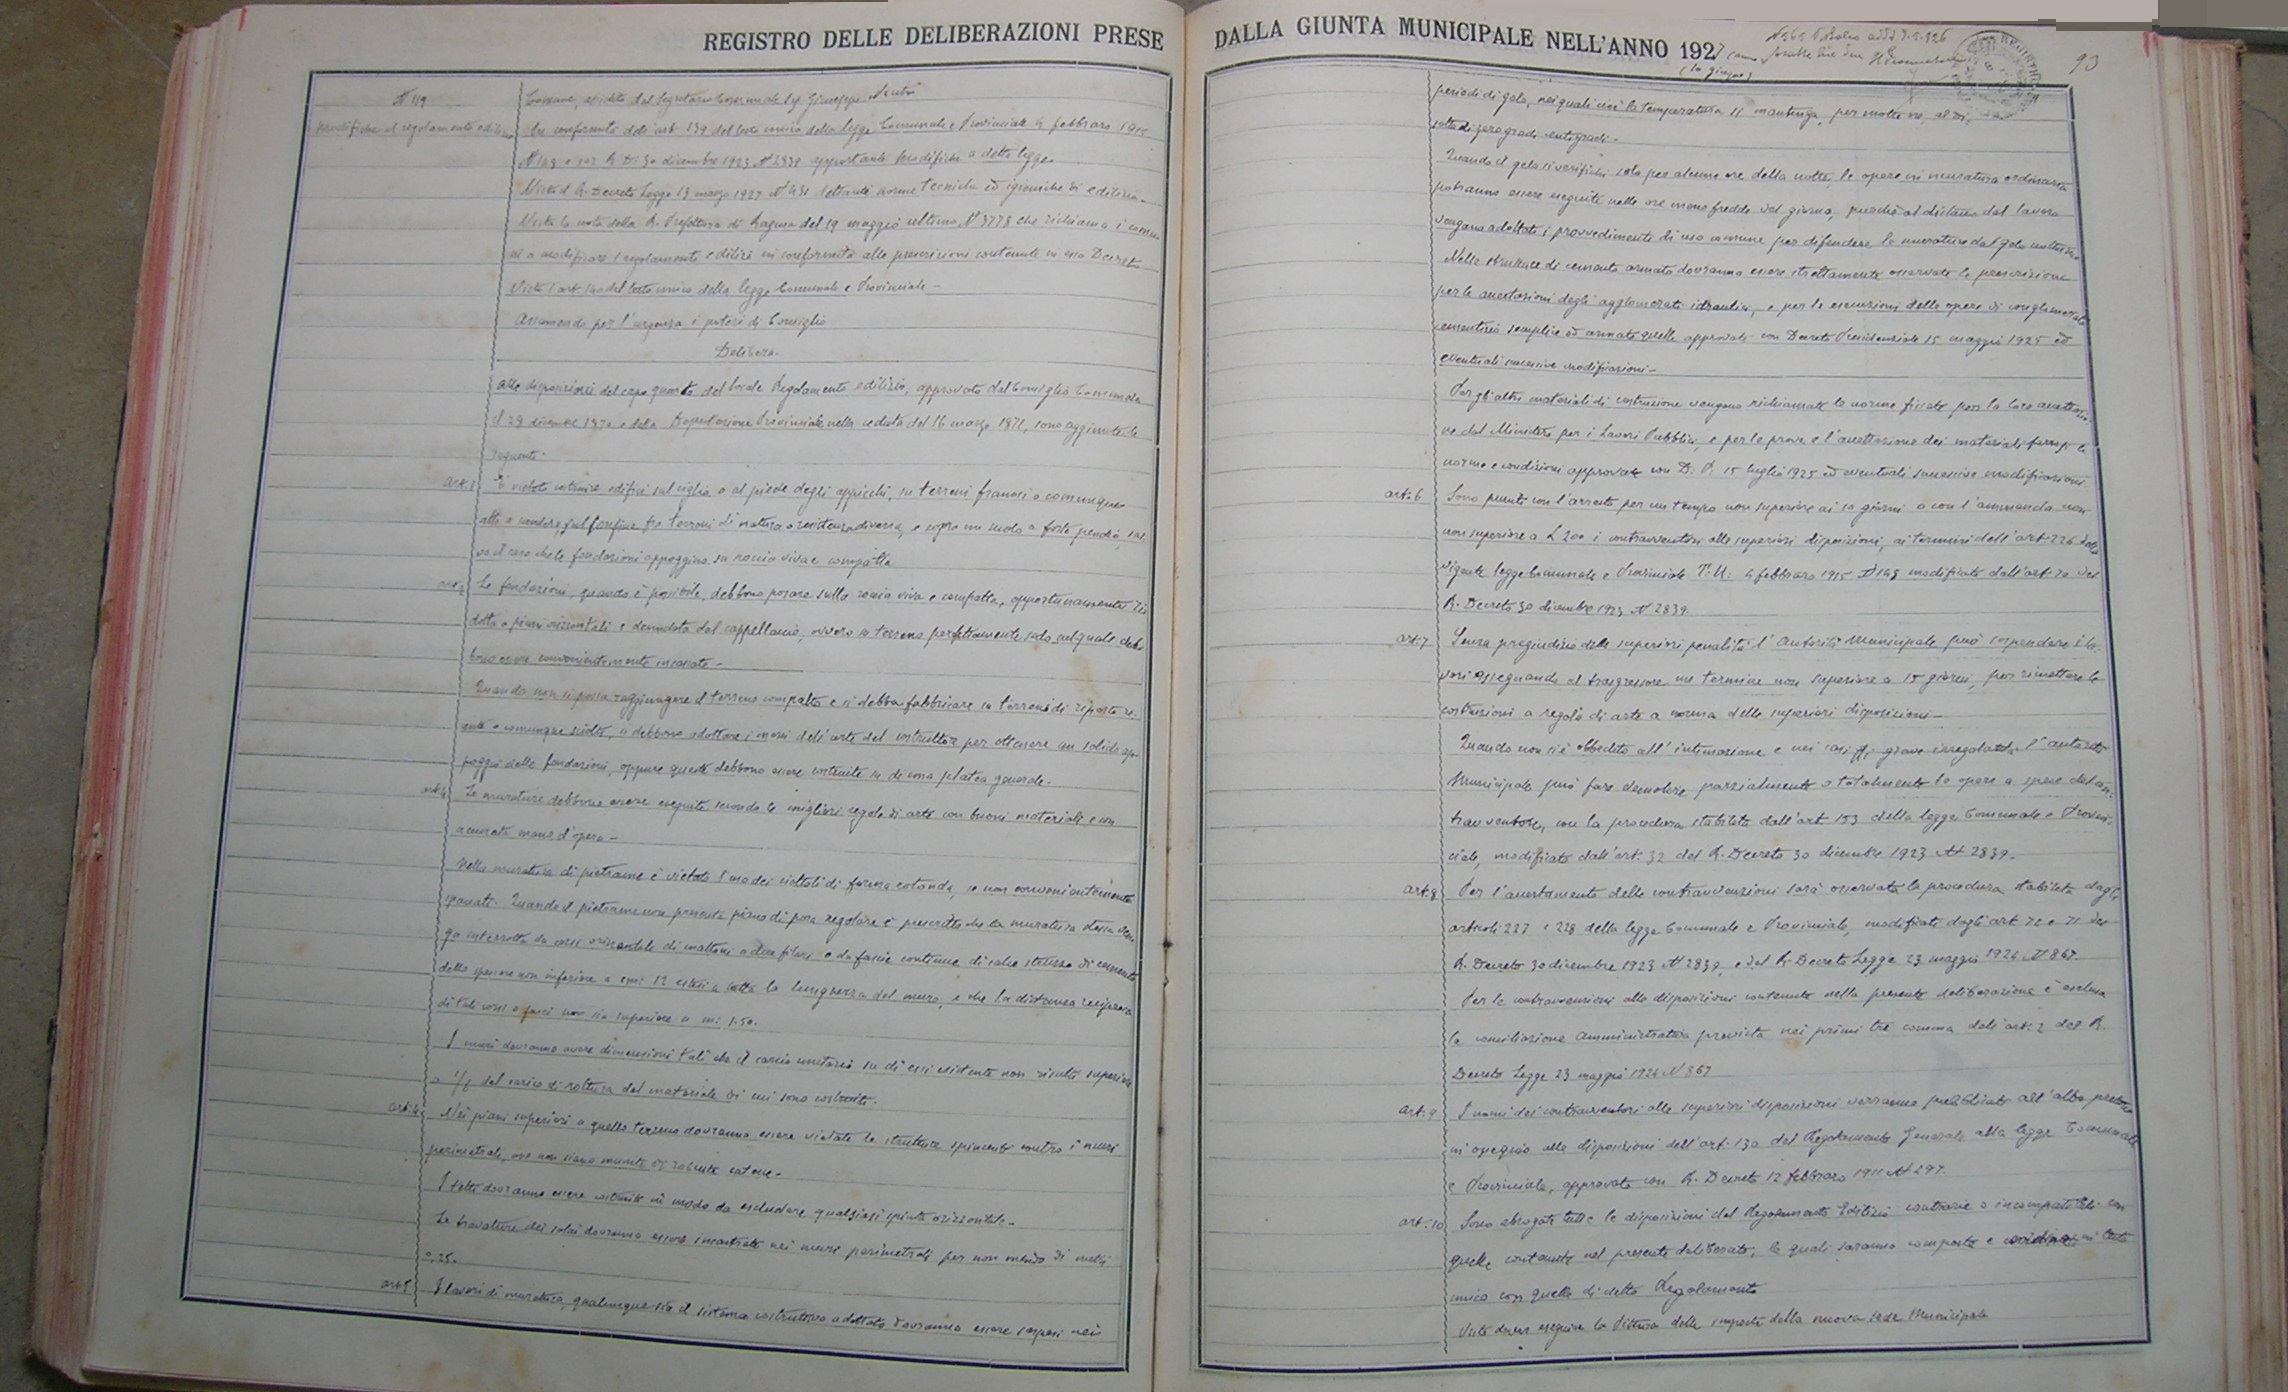 REGISTRO DELLE DELIBERAZIONI PRESE
N 49
Modifiche al regolamento edilizio
Comune, assistito dal Segretario Comunale Sig. Giuseppe
In conformità dell'art. 139 del testo unico della legge Comunale e Provinciale 4 febbraio 1915
N 148 e R. D. 30 dicembre 1923 N 2839 apportante modifiche a detta legge
Visto il R. Decreto Legge 13 marzo 1927 N 431 dettante norme tecniche ed igieniche di edilizia.
Vista la nota della R. Prefettura di Ragusa del 19 maggio ultimo N 3778 che richiama i comu
ni a modificare i regolamenti edilizi in conformità alle prescrizioni contenute in esso Decreto
Visto l'art. 140 del testo unico della legge Comunale e Provinciale -
Assumendo per l'urgenza i poteri di Consiglio
Delibera.
alle disposizioni del capo quarto del locale Regolamento edilizio, approvato dal Consiglio Comunale
il 28 dicembre 1870 e dalla Deputazione Provinciale nella seduta del 16 marzo 1871, sono aggiunte le
seguenti.
art. 1 È vietato costruire edifici sul ciglio o al piede degli appicchi, su terreni franosi o comunque
atti a scendere, sul confine fra terreni di natura o resistenza diversa, e sopra un suolo a forte pendio, sal
vo il caso che le fondazioni appoggino su roccia viva e compatta
art. 2 Le fondazioni, quando è possibile, debbono posare sulla roccia viva e compatta, opportunamente ri
dotta a piani orizzontali e denudata dal cappellaccio, ovvero su terreno perfettamente sodo nel quale deb
bono essere convenientemente incassate -
Quando non si possa raggiungere il terreno compatto e si debba fabbricare su terreni di riporto re
cente o comunque sciolto, si debbono adottare i mezzi dell'arte del costruttore per ottenere un solido ap
poggio delle fondazioni, oppure queste debbono essere costruite su di una platea generale.
art. 3 Le murature debbono essere eseguite secondo le migliori regole di arte con buoni materiali e con
accurata mano d'opera -
Nella muratura di pietrame è vietato l'uso dei ciottoli di forma rotonda, se non convenientemente
spaccati. Quando il pietrame non presenta piano di posa regolare è prescritto che la muratura stessa ven
ga interrotta da corsi orizzontali di mattoni a due filari o da fascie continue di calcestruzzo di cemento
dello spessore non inferiore a cmi 12 estesi a tutta la lunghezza del muro, e che la distanza reciproca
di tali corsi o fasci non sia superiore a mi: 1.50.
I muri dovranno avere dimensioni tali che il carico unitario su di essi esistente non risulti superiore
a del carico di rottura del materiale di cui sono costruiti.
art. 4 Nei piani superiori a quello terreno dovranno essere vietate le strutture spingenti contro i muri
perimetrali, ove non siano munite di robuste catene -
I tetti dovranno essere costruiti in modo da escludere qualsiasi spinta orizzontale -
Le travature dei solai dovranno essere incastrate nei muri perimetrali per non meno di metri
0,25.
art. 5 I lavori di muratura, qualunque sia il sistema costruttivo adottato dovranno essere sospesi nei
DALLA GIUNTA MUNICIPALE NELL'ANNO 1927
93
periodi di gelo, nei quali cioè la temperatura si mantenga, per molte ore, al di
sotto di zero gradi centigradi.
Quando il gelo si verifichi solo per alcune ore della notte, le opere in muratura ordinaria
potranno essere eseguite nelle ore meno fredde del giorno, purchè al distacco dal lavoro
vengano adottati i provvedimenti di uso comune per difendere le murature dal gelo notturno
Nelle strutture di cemento armato dovranno essere strettamente osservate le prescrizioni
per le accettazioni degli agglomerati idraulici, e per le esecuzioni delle opere di conglomerato
cementizio semplice ed armato quelle approvate con Decreto Presidenziale 15 maggio 1925 ed
eventuali successive modificazioni -
Per gli altri materiali di costruzione vengono richiamate le norme fissate per la loro accettazio
ne dal Ministero per i Lavori Pubblici, e per le prove e l'accettazione dei materiali ferrosi le
norme e condizioni approvate con D. P. 15 luglio 1925 ed eventuali successive modificazioni.
art. 6 Sono puniti con l'arresto per un tempo non superiore ai 10 giorni o con l'ammenda non
non superiore a L 200 i contravventori alle superiori disposizioni, ai termini dell'art. 226 della
vigente legge Comunale e Provinciale T. U. 4 febbraio 1915 N 148 modificato dall'art. 70 del
R. Decreto 30 dicembre 1923 N 2839.
art. 7 Senza pregiudizio delle superiori penalità l'autorità Municipale può sospendere i la-
vori assegnando al trasgressore un termine non superiore a 15 giorni, per rimettere le
costruzioni a regola di arte a norma delle superiori disposizioni -
Quando non si è obbedito all'intimazione e nei casi di grave irregolarità l'autorità
Municipale può fare demolire parzialmente o totalmente le opere a spese del con-
travventore, con la procedura stabilita dall'art 153 della legge Comunale e Provin-
ciale, modificato dall'art. 32 del R. Decreto 30 dicembre 1923 N 2839.
art. 8 Per l'accertamento delle contravvenzioni sarà osservata la procedura stabilita dagli
articoli 227 e 228 della legge Comunale e Provinciale, modificati dagli art. 72 e 71 del
R. Decreto 30 dicembre 1923 N 2839, e dal R. Decreto Legge 23 maggio 1924 N 867.
Per le contravvenzioni alle disposizioni contenute nella presente deliberazione è esclusa
la conciliazione amministrativa prevista nei primi tre comma dell'art. 2 del R.
Decreto Legge 23 maggio 1924 N 867
art. 9 I nomi dei contravventori alle superiori disposizioni verranno pubblicati all'albo pretorio
in ossequio alle disposizioni dell'art. 130 del Regolamento Generale alla legge Comunale
e Provinciale, approvato con R. Decreto 12 febbraio 1911 N 297.
art. 10 Sono abrogate tutte le disposizioni del Regolamento Edilizio contrarie o incompatibili con
quelle contenute nel presente deliberato, le quali saranno composte e coordinate in testo
unico con quelle di detto Regolamento
Visto dover eseguire la pittura delle imposte della nuova sede Municipale